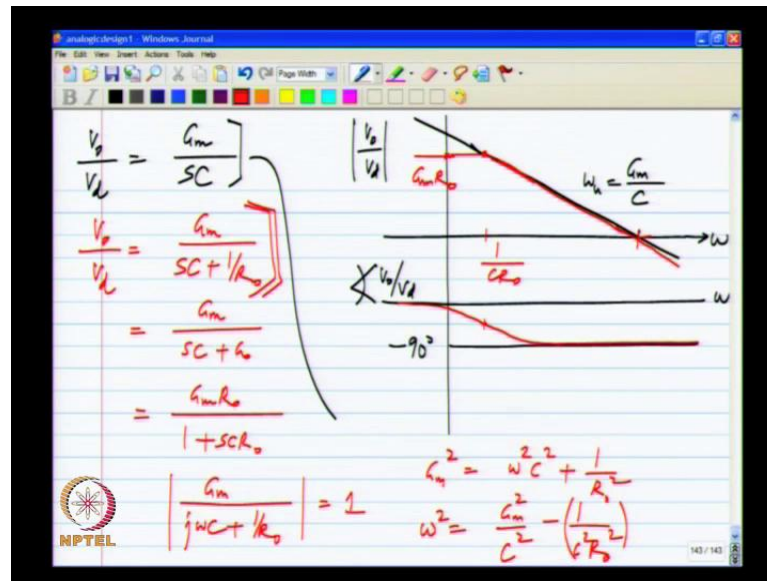 analogicdesign1 - Windows Journal
File Edit View Insert Actions Tools Help
Page Width
B I
V₀/V_d = G_m/SC ]
V₀/V_d = G_m/(SC + 1/R₀) ]
= G_m/(SC + G₀)
= G_m R₀/(1 + SCR₀)
|G_m/(jωC + 1/R₀)| = 1
|V₀/V_d|
G_m R₀
ω_u = G_m/C
ω
1/CR₀
∠V₀/V_d
ω
-90°
G_m² = ω²C² + 1/R₀²
ω² = G_m²/C² - (1/C²R₀²)
NPTEL
143 / 143